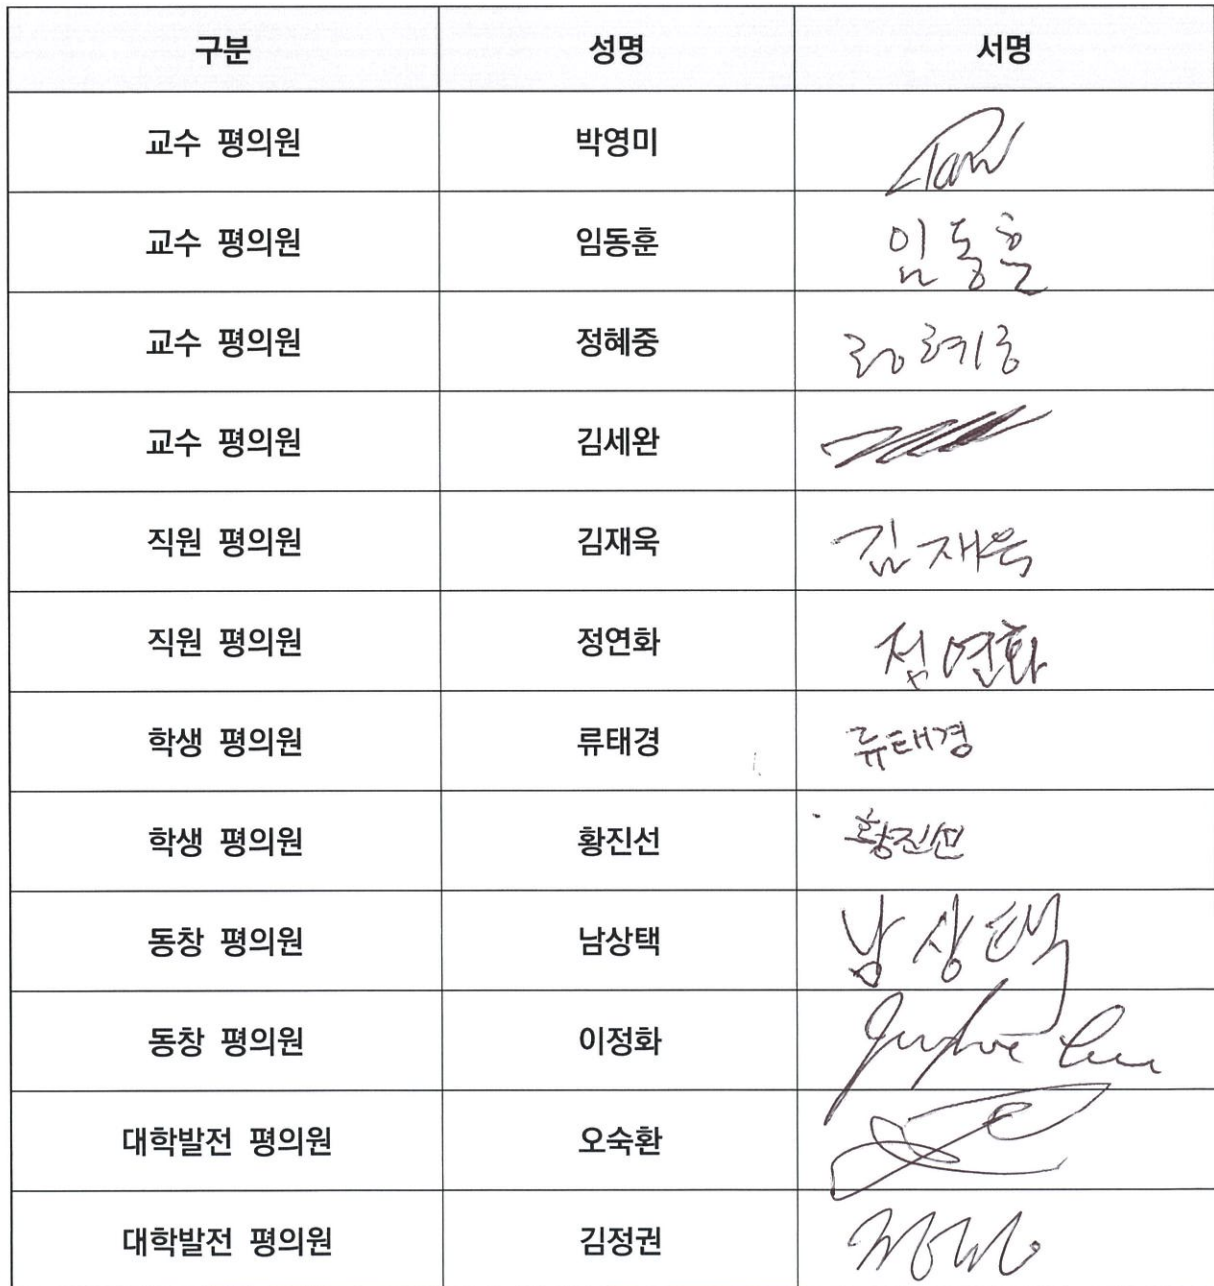 구분 성명 서명
교수 평의원 박영미
교수 평의원 임동훈 임동훈
교수 평의원 정혜중 정혜중
교수 평의원 김세완
직원 평의원 김재욱 김재욱
직원 평의원 정연화 정연화
학생 평의원 류태경 류태경
학생 평의원 황진선 황진선
동창 평의원 남상택 남상택
동창 평의원 이정화
대학발전 평의원 오숙환
대학발전 평의원 김정권